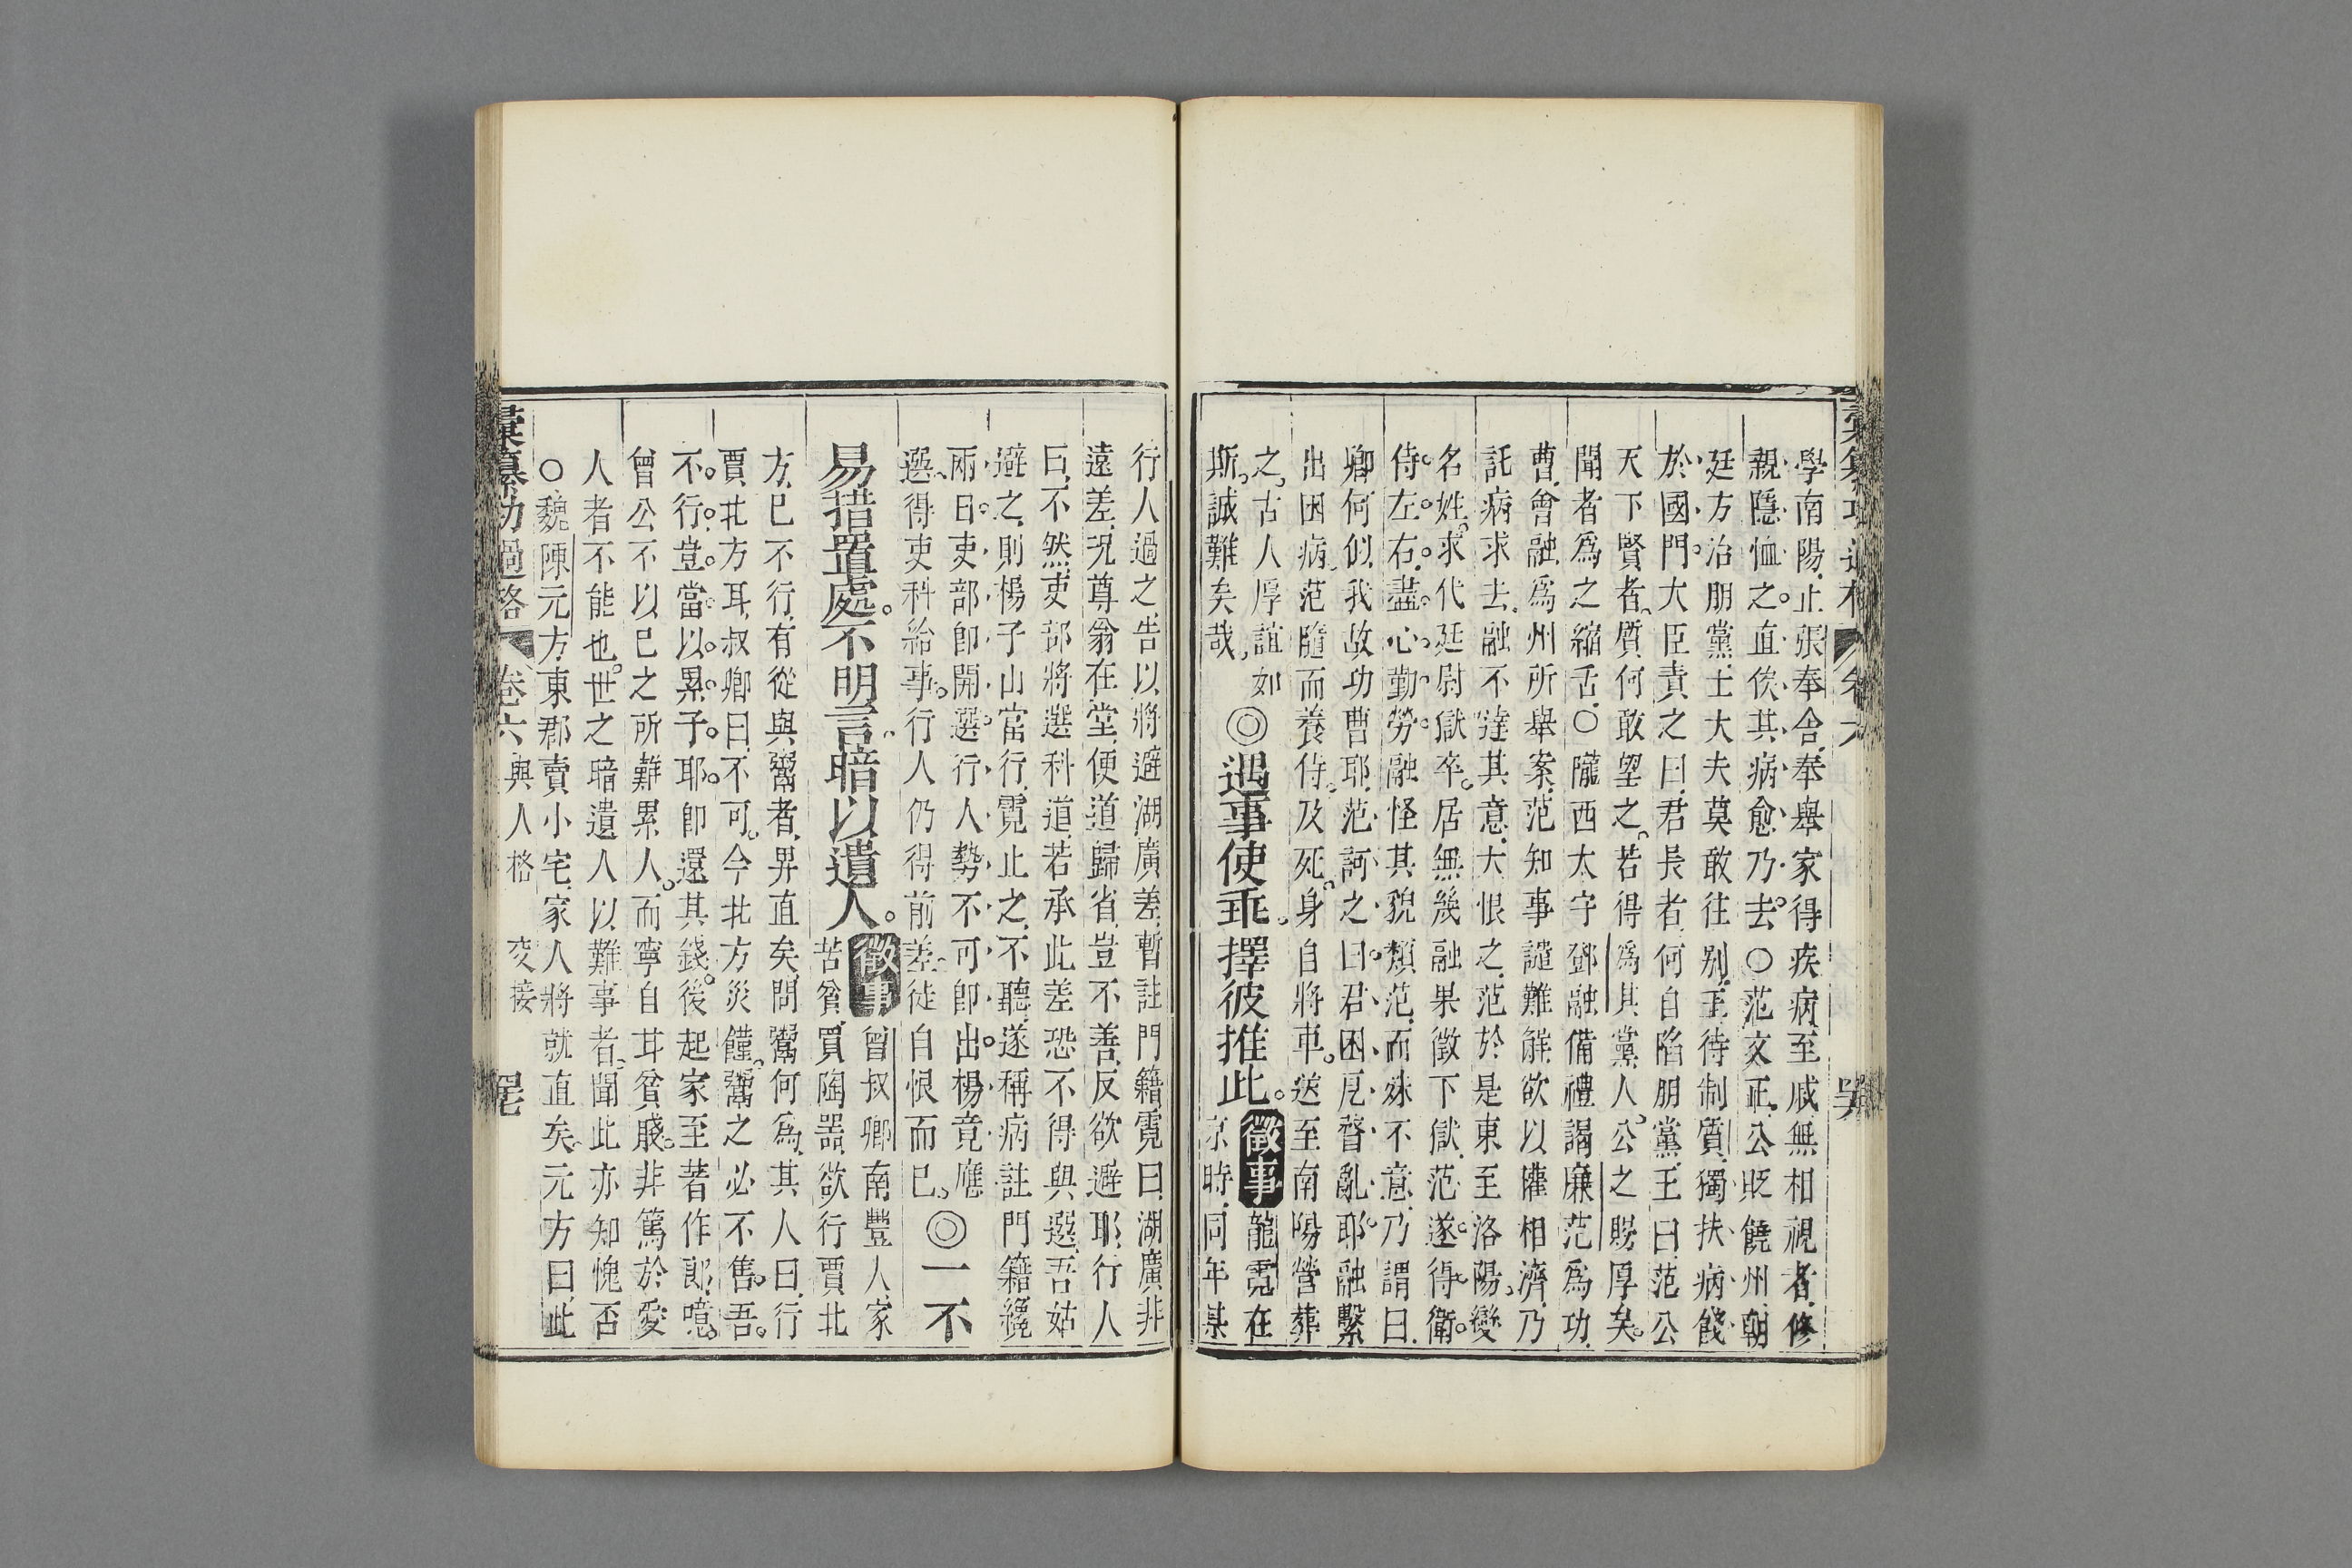 學南陽止張奉舍奉舉家得疾病至戚無相視者修
親隱恤之直俟其病愈乃去○范文正公貶饒州朝
廷方治朋黨士大夫莫敢往别王待制質獨扶病餞
於國門大臣責之曰君長者何自陷朋黨王曰范公
天下賢者質何敢望之若得為其黨人公之賜厚矣
聞者爲之縮舌○隴西太守鄧融備禮謁廉范爲功
曹會融爲州所舉案范知事譴難解欲以權相濟乃
託病求去融不達其意大恨之范於是東至洛陽變
名姓求代廷尉獄卒居無幾融果徵下獄范遂得衛
侍左右盡心勤勞融怪其貌類范而殊不意乃謂曰
卿何似我故功曹耶范訶之曰君困厄瞀亂耶融繫
出困病范隨而養侍及死身自將車送至南陽營葬
之古人厚誼如
斯誠難矣哉
◎遇事使乖擇彼推此
徵事
龍霓在
京時同年某
行人過之告以將避湖廣差暫註門籍霓曰湖廣非
遠差况尊翁在堂便道歸省豈不善反欲避耶行人
曰不然吏部將選科道若承此差恐不得與選吾姑
避之則楊子山當行霓止之不聽遂稱病註門籍纔
兩日吏部即開選行人勢不可即出楊竟應
選得吏科給事行人仍得前差徒自恨而已
◎一不
易措置處不明言暗以遺人
徵事
曾叔卿南豐人家
苦貧買陶器欲行賈北
方已不行有從與鬻者畀直矣問鬻何爲其人曰行
賈北方耳叔卿曰不可今北方災饉鬻之必不售吾
不行豈當以累子耶即還其錢後起家至著作郎噫
曾公不以已之所難累人而寧自甘貧賤非篤於愛
人者不能也世之暗遺人以難事者聞此亦知愧否
○魏陳元方東郡賣小宅家人將就直矣元方曰此
彙纂功過格
卷六
與人格
交接